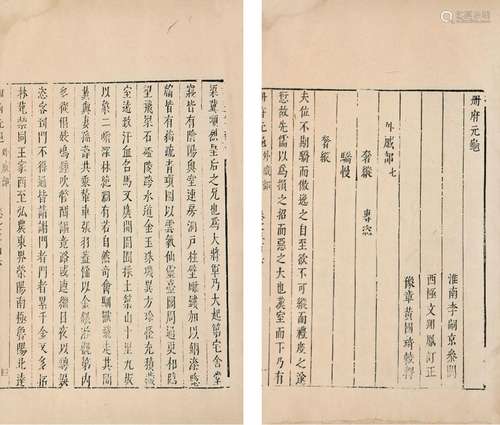 冊府元龜
淮南李嗣京參閱
西極文翔鳳訂正
豫章黃國琦較釋
外戚部七
奢縱 專恣
驕慢
奢縱
夫位不期驕而傲逸之自至欲不可縱度之途
愆故先儒以為損之招而惡之大也冀室而下乃有
冊府元龜 外戚部
梁冀順烈皇后之兄也為大將軍乃大起第宅舍堂
寢皆有陰陽與室連房洞戶柱壁雕鏤加以銅漆牕
牖皆有綺疏青瑣圖以雲氣仙靈臺閣周通更相臨
望飛梁石磴陵跨水道金玉珠璣異方珍怪充積藏
室遠致汗血名馬又廣開園囿採土築山十里九坂
以象二崤深林絕澗有若自然奇禽馴獸飛走其間
冀與妻孫壽共乘輦車張羽蓋飾以金銀游觀第內
多從倡妓鳴鐘吹管酣謳竟路或連繼日夜以騁娛
恣客到門不得通皆請謝門者門者累千金又多拓
林苑禁同王家西至弘農東界滎陽南極魯陽北達
冊府元龜 外戚部